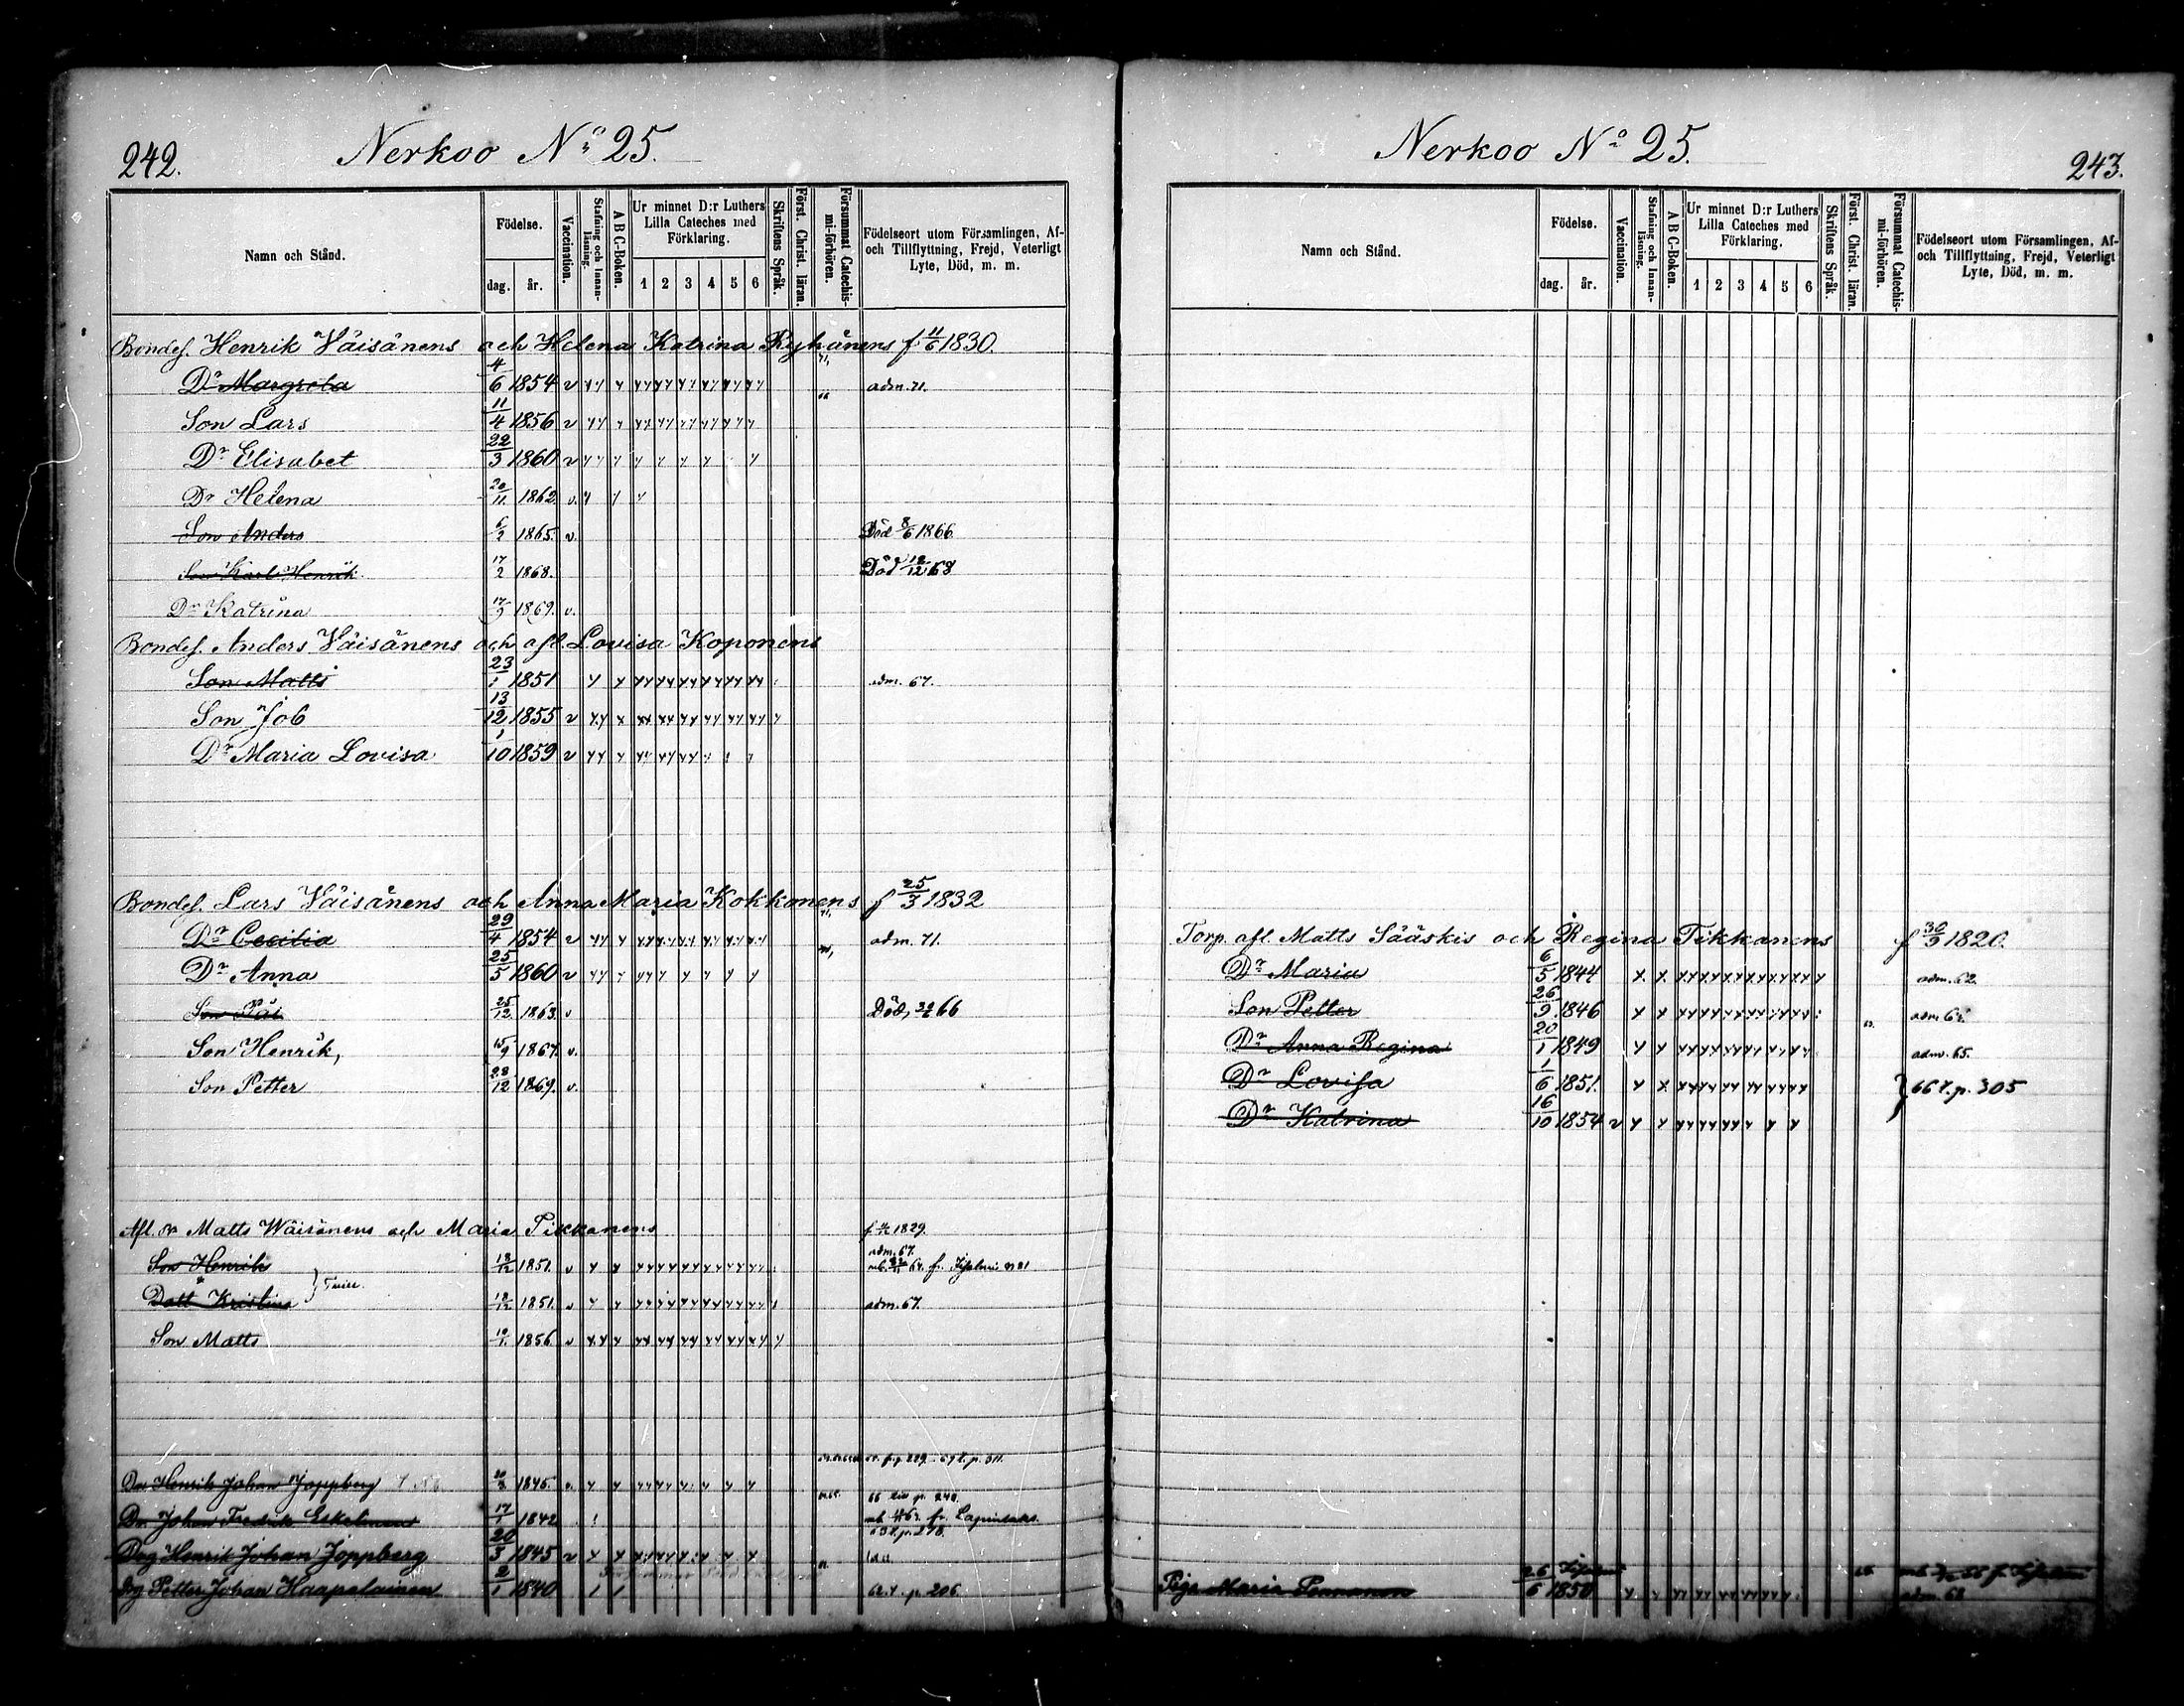 242.
Nerkoo No 25.
Namn och Stånd.
Födelse.
dag. år.
Vaccination.
Stafning och Innanläsning.
A B C-Boken.
Ur minnet D:r Luthers Lilla Cateches med Förklaring.
1 2 3 4 5 6
Skriftens Språk.
Först. Christ. läran.
Försummat Catechismi-förhören.
Födelseort utom Församlingen, Af- och Tillflyttning, Frejd, Veterligt Lyte, Död, m. m.
Bondes. Henrik Väisänens och Helena Katrina Ryhänens f 11/6 1830.
Dr Margreta 4/6 1854 v adm. 71.
Son Lars 11/4 1856 v
Dr Elisabet 22/3 1860 v
Dr Helena 20/11 1862. v.
Son Anders 6/2 1865. v. Död 8/6 1866
Son Karl Henrik 17/2 1868. Död 12/12 68
Dr Katrina 17/9 1869. v.
Bondes. Anders Väisänens och afl. Lovisa Koponens
Son Matts 23/1 1851 adm. 67.
Son Job 13/12 1855 v
Dr Maria Lovisa 1/10 1859 v
Bondes. Lars Väisänens och Anna Maria Kokkonens f 25/3 1832
Dr Cecilia 29/4 1854 v adm. 71.
Dr Anna 25/5 1860 v
Son Pål 25/12 1863. v Död, 66
Son Henrik, 15/9 1867. v.
Son Petter 28/12 1869. v.
Afl. Matts Wäisänens och Maria Tikkanens f 1829.
adm. 67.
Son Henrik 18/12 1851. v
Datt Kristina 18/12 1851. v adm. 67.
Son Matts 10/1 1856. v
Dr Henrik Johan Joppberg 1845. v.
66 p. 248.
Dr Johan Fredrik Eskelinen 17/1 1842
p. 278.
Drg Henrik Johan Joppberg 20/3 1845 v
Drg Petter Johan Haapalainen 2/1 1840 p. 206.
243.
Nerkoo No 25.
Namn och Stånd.
Födelse.
dag. år.
Vaccination.
Stafning och Innanläsning.
A B C-Boken.
Ur minnet D:r Luthers Lilla Cateches med Förklaring.
1 2 3 4 5 6
Skriftens Språk.
Först. Christ. läran.
Försummat Catechismi-förhören.
Födelseort utom Församlingen, Af- och Tillflyttning, Frejd, Veterligt Lyte, Död, m. m.
Torp. afl. Matts Sääskis och Regina Tikkanens f 30/9 1820.
Dr Maria 6/5 1844 adm. 62.
Son Petter 26/9 1846
Dr Anna Regina 20/1 1849 adm. 65.
Dr Lovisa 1/6 1851. } 66 t. p. 305
Dr Katrina 16/10 1854 v
Piga Maria Pennanen 26/6 1850 adm. 68